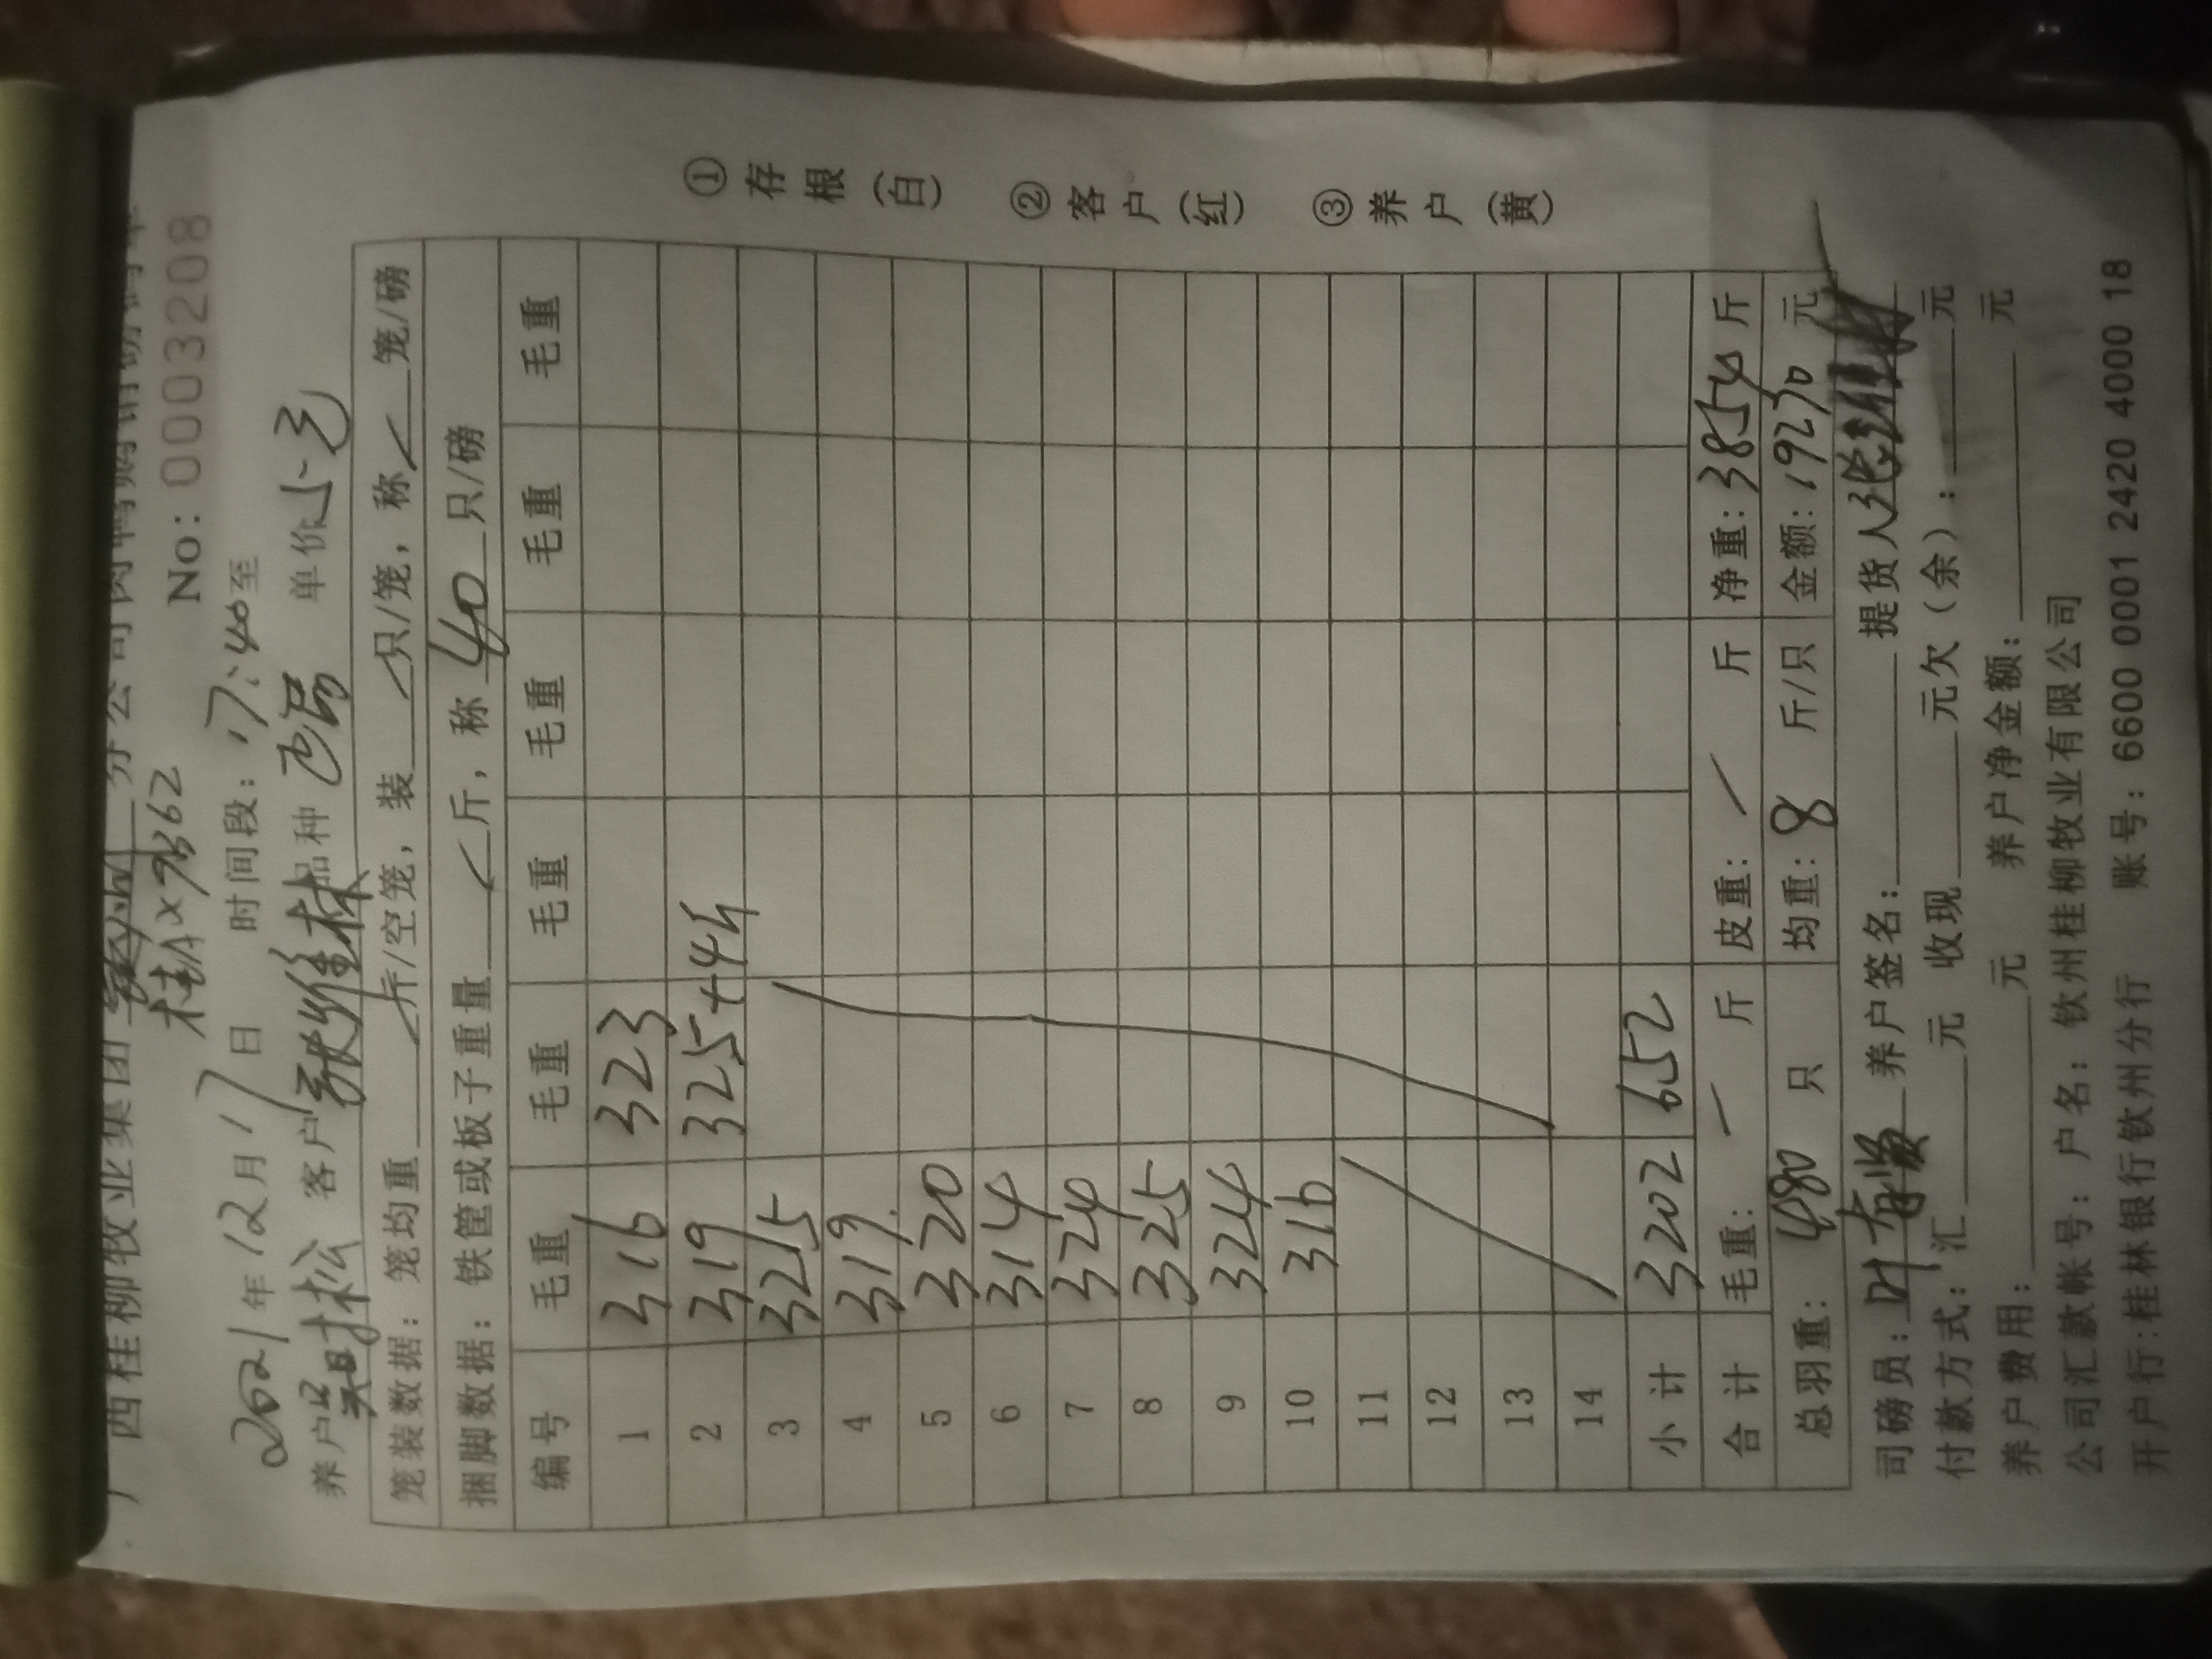 广西桂柳牧业集团 分公司肉鸭购销磅码单
桂A×7362 No: 0003208
2021年12月17日 时间段: 17:40至
养户 客户张维林 品种 单价
笼装数据: 笼均重 斤/空笼, 装 只/笼, 称 笼/磅
捆脚数据: 铁筐或板子重量 斤, 称40只/磅
编号 毛重 毛重 毛重 毛重 毛重 毛重
1 316 323
2 319 325+4只
3 325
4 319
5 320
6 314
7 324
8 325
9 324
10 316
11
12
13
14
小计 3202 652
合计 毛重: 斤 皮重: 斤 净重: 3854斤
总羽重: 480只 均重: 8 斤/只 金额: 19270元
司磅员: 叶 养户签名: 提货人张
付款方式: 汇 元 收现 元欠(余): 元
养户费用: 元 养户净金额: 元
公司汇款帐号: 户名: 钦州桂柳牧业有限公司
开户行:桂林银行钦州分行 账号: 6600 0001 2420 4000 18
①存根(白) ②客户(红) ③养户(黄)